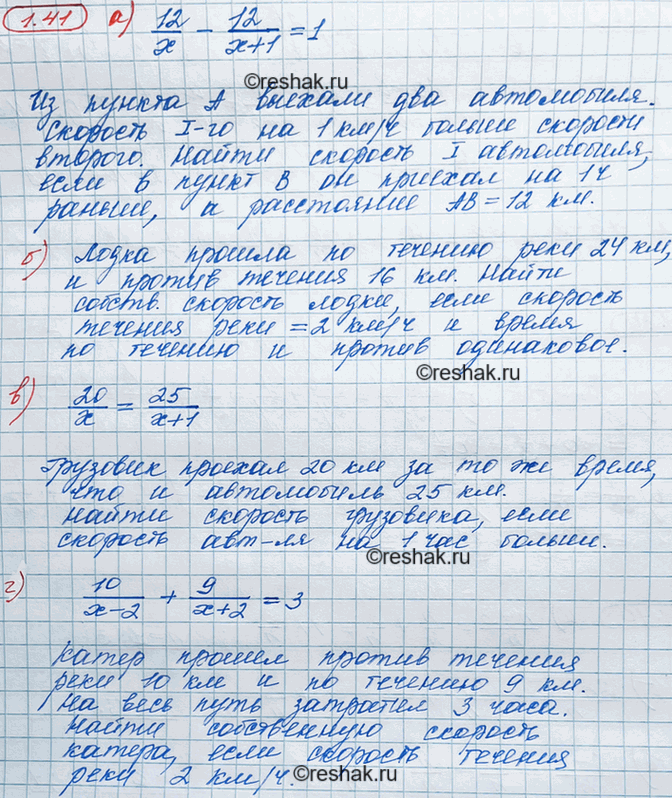 1.41 а) 12/x - 12/(x+1) = 1
©reshak.ru
Из пункта А выехали два автомобиля.
Скорость I-го на 1 км/ч больше скорости
второго. Найти скорость I автомобиля,
если в пункт В он приехал на 1ч
раньше, а расстояние АВ = 12 км.
б) Лодка прошла по течению реки 24 км,
и против течения 16 км. Найти
собств. скорость лодки, если скорость
течения реки = 2 км/ч и время
по течению и против одинаковое.
©reshak.ru
в) 20/x = 25/(x+1)
Грузовик проехал 20 км за то же время,
что и автомобиль 25 км.
Найти скорость грузовика, если
скорость авт-ля на 1 час больше.
©reshak.ru
г) 10/(x-2) + 9/(x+2) = 3
Катер прошел против течения
реки 10 км и по течению 9 км.
На весь путь затратил 3 часа.
Найти собственную скорость
катера, если скорость течения
реки 2 км/ч.
©reshak.ru